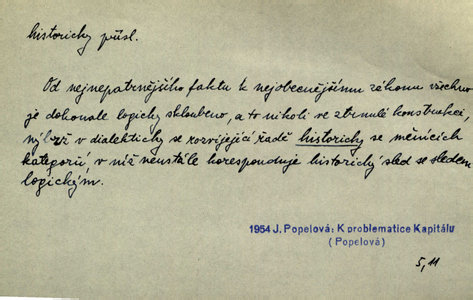 historicky přísl.
Od nejnepatrnějšího faktu k nejobecnějšímu zákonu všechno
je dokonale logicky skloubeno, a to nikoli ve ztrnulé konstrukci,
nýbrž v dialekticky se rozvíjející řadě historicky se měnících
kategorií, v níž neustále koresponduje historický sled se sledem
logickým.
1954 J. Popelová: K problematice Kapitálu
(Popelová)
5, 11